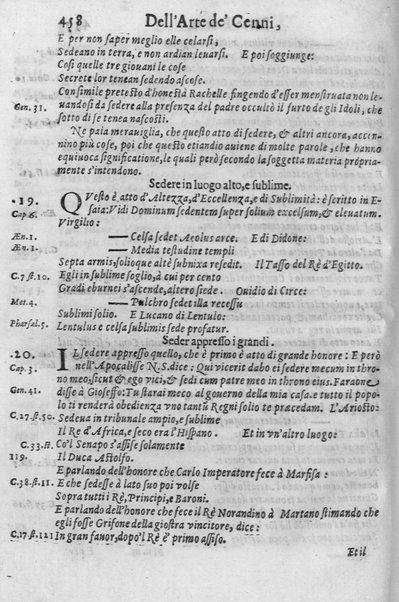 458 Dell'Arte de' Cenni,
E per non saper meglio elle celarsi,
Sedeano in terra, e non ardian leuarsi. E poi soggiunge:
Così quelle tre giouani le cose
Secrete lor tenean sedendo ascose.
Con simile pretesto d'honestà Rachelle fingendo d'esser menstruata non le-
Gen. 31. uandosi da sedere alla presenza del padre occultò il furto de gli Idoli, che
sotto di se tenea nascosti.
Ne paia merauiglia, che questo atto di sedere, & altri ancora, accen-
nino più cose, poi che questo etiandio auiene di molte parole, che hanno
equiuoca significatione, le quali però secondo la soggetta materia propria-
mente s'intendono.
Sedere in luogo alto, e sublime.
.19. QVesto è atto d'Altezza, d'Eccellenza, e di Sublimità: è scritto in E-
Cap. 6. saia: Vidi Dominum sedentem super solium excelsum, & eleuatum.
Virgilio:
Æn. 1. —— Celsa sedet Aeolus arce. E di Didone:
Æn. 1. —— Media testudine templi
Septa armis, solioque altè subnixa resedit. Il Tasso del Rè d'Egitto.
C. 7. st. 10. Egli in sublime soglio, à cui per cento
Gradi eburnei s'ascende, altero siede. Ouidio di Circe:
Met. 4. —— Pulchro sedet illa recessu
Sublimi solio. E Lucano di Lentulo:
Pharsal. 5. Lentulus e celsa sublimis sede profatur.
Seder appresso i grandi.
.20. IL sedere appresso quello, che è primo è atto di grande honore: E però
Cap. 3. nell'Apocalisse N.S. dice: Qui vicerit dabo ei sedere mecum in thro-
no meo, sicut & ego vici, & sedi cum patre meo in throno eius. Faraone
Gen. 41. disse à Gioseffo: Tu starai meco al gouerno della mia casa. e tutto il popo-
lo ti renderà obedienza vno tantũ Regni solio te præcedam. L'Ariosto:
C. 27. st. 50. Sedeua in tribunale ampio, e sublime
Il Re d'Africa, e seco era l'Hispano. Et in vn'altro luogo:
C. 33. st. Co'l Senapo s'assise solamente
119. Il Duca Astolfo.
E parlando dell'honore che Carlo Imperatore fece à Marfisa:
C. 38. st. 11. E che sedesse à lato suo poi volse
Sopra tutti i Rè, Principi, e Baroni.
E parlando dell'honore che fece il Rè Norandino à Martano stimando che
egli fosse Grifone della giostra vincitore, dice:
C. 17. st. 121 In gran fauor, dopo'l Rè è primo assiso.
Et il